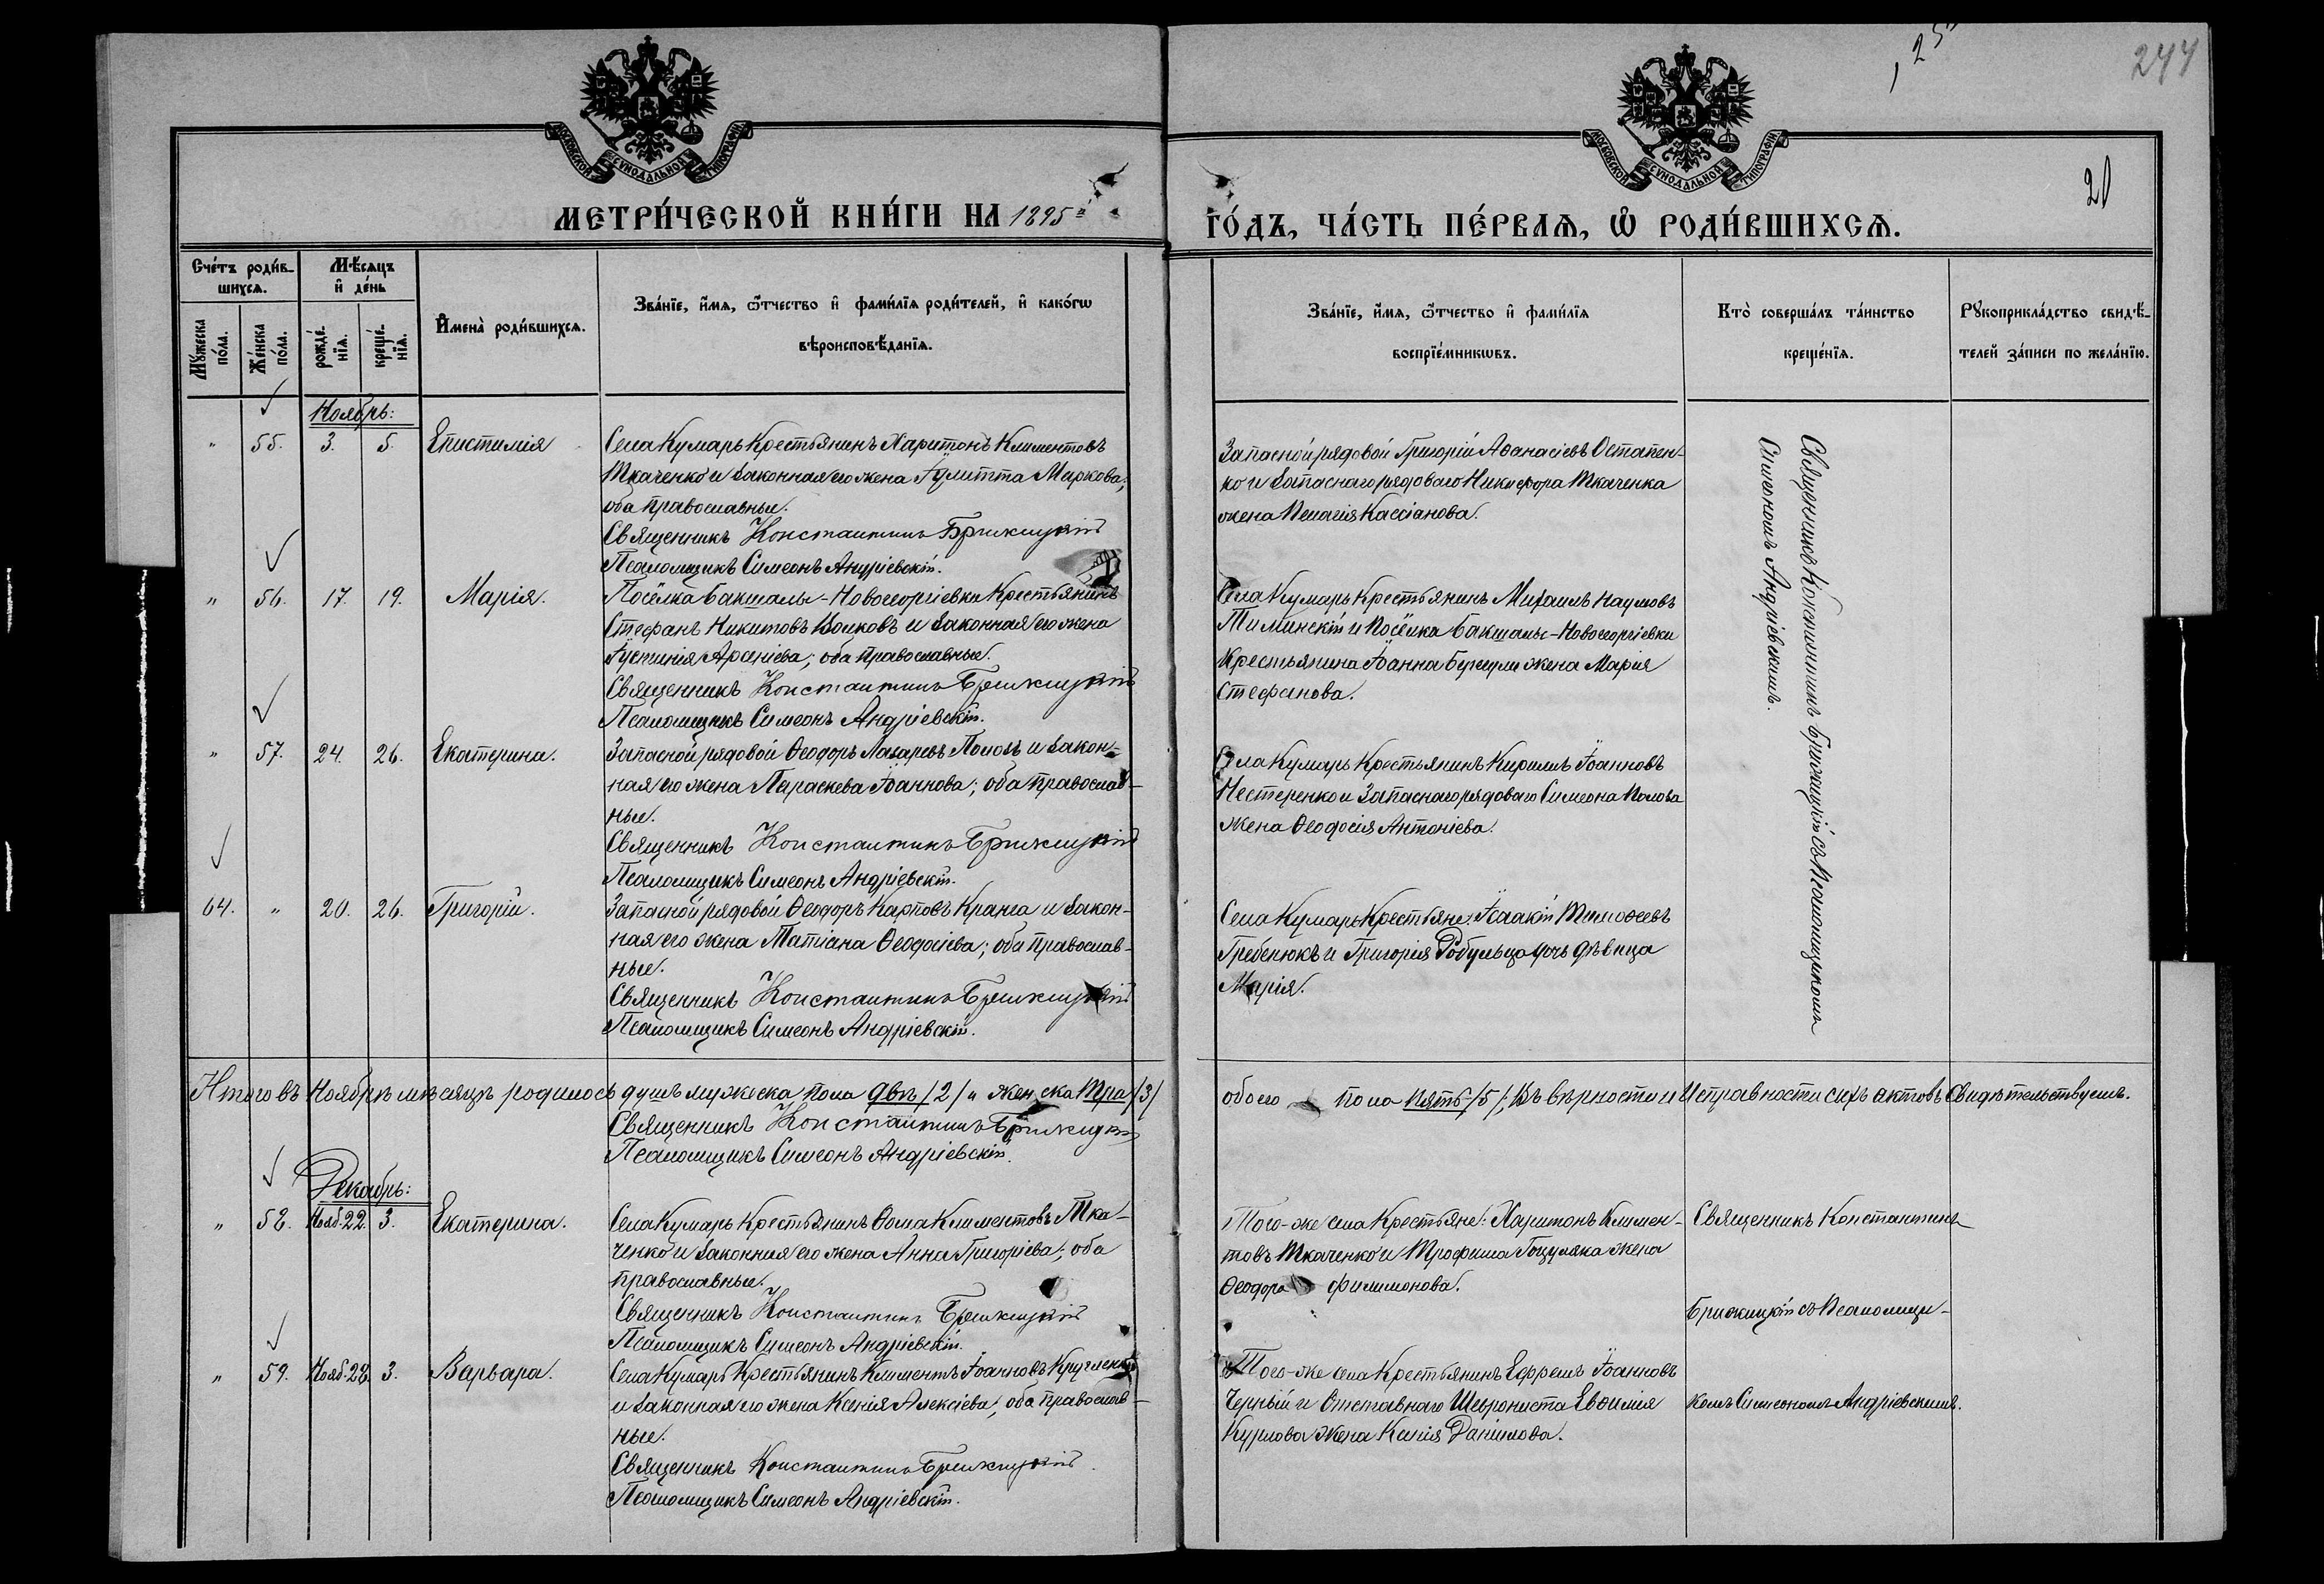 1 25
244
20
МОСКОВСКОЙ СѴНОДАЛЬНОЙ ТИПОГРАФІИ
МОСКОВСКОЙ СѴНОДАЛЬНОЙ ТИПОГРАФІИ
МЕТРИ́ЧЕСКОЙ КНИ́ГИ НА 1895й ГО́ДЪ, ЧА́СТЬ ПЕ́РВАѦ, Ѡ РОДИ́ВШИХСѦ.
Сче́тъ роди́в-
шихсѧ.
Мѣ́сѧцъ
и де́нь
Мꙋжеска по́ла.
Же́нска по́ла.
рожде́-
нїѧ.
креще́-
нїѧ.
Имена̀ роди́вшихсѧ.
Зва́нїе, и́мѧ, ѻ́тчество и фами́лїѧ роди́телей, и како́гѡ
вѣроисповѣ́данїѧ.
Зва́нїе, и́мѧ, ѻ́тчество и фами́лїѧ
воспрїе́мникѡвъ.
Кто̀ соверша́лъ та́инство
креще́нїѧ.
Рꙋкоприкла́дство свидѣ́-
телей за́писи по жела́нїю.
Ноябрь:
" 55. 3. 5. Епистимія
Села Кумарь Крестьянинъ Харитонъ Климентовъ
Ткаченко и законная его жена Іулитта Маркова;
оба православные.
Священникъ Константинъ Брижицкій
Псаломщикъ Симеонъ Андріевскій.
Запасной рядовой Григорій Аѳанасіевъ Остапен-
ко и запаснаго рядоваго Никифора Ткаченка
жена Пелагія Кассіанова.
Священникъ Константинъ Брижицкій съ Псаломщикомъ
Симеономъ Андріевскимъ.
" 56. 17. 19. Марія.
Посёлка Бакшалы-Новогеоргіевки Крестьянинъ
Стефанъ Никитовъ Волковъ и законная его жена
Іустинія Арсеніева; оба православные.
Священникъ Константинъ Брижицкій
Псаломщикъ Симеонъ Андріевскій.
Села Кумарь Крестьянинъ Михаилъ Наумовъ
и Посёлка Бакшалы-Новогеоргіевки
Крестьянина Іоанна жена Марія
Стефанова.
" 57. 24. 26. Екатерина.
Запасной рядовой Ѳеодоръ Лазаревъ и закон-
ная его жена Параскева Іоаннова; оба православ-
ные.
Священникъ Константинъ Брижицкій
Псаломщикъ Симеонъ Андріевскій.
Села Кумарь Крестьянинъ Кириллъ Іоанновъ
Нестеренко и Запаснаго рядоваго Симеона
жена Ѳеодосія Антоніева.
64. " 20. 26. Григорій.
Запасной рядовой Ѳеодоръ Карповъ Кранга и закон-
ная его жена Татіана Ѳеодосіева; оба православ-
ные.
Священникъ Константинъ Брижицкій
Псаломщикъ Симеонъ Андріевскій.
Села Кумарь Крестьяне: Исаакій Тимоѳеевъ
Гребенюкъ и Григорія дочь дѣвица
Марія.
Итого въ Ноябрѣ мѣсяцѣ родилось душъ мужеска пола двѣ /2/ и женска три /3/ обоего пола пять /5/; Въ вѣрности и исправности сихъ актовъ свидѣтельствуемъ.
Священникъ Константинъ Брижицкій
Псаломщикъ Симеонъ Андріевскій.
Декабрь:
" 58. Нояб. 22. 3. Екатерина.
Села Кумарь Крестьянинъ Ѳома Климентовъ Тка-
ченко и законная его жена Анна Григоріева; оба
православные.
Священникъ Константинъ Брижицкій
Псаломщикъ Симеонъ Андріевскій.
Того-же села Крестьяне: Харитонъ Климен-
товъ Ткаченко и Трофима Гоцуляка жена
Ѳеодора Филимонова.
Священникъ Константинъ
Брижицкій съ Псаломщи-
комъ Симеономъ Андріевскимъ.
" 59. Нояб. 28. 3. Варвара.
Села Кумарь Крестьянинъ Климентъ Іоанновъ
и законная его жена Ксенія Алексіева; оба православ-
ные.
Священникъ Константинъ Брижицкій
Псаломщикъ Симеонъ Андріевскій.
Того-же села Крестьянинъ Ефремъ Іоанновъ
Черный и Отставнаго Евѳимія
Курлова жена Ксенія Даніилова.